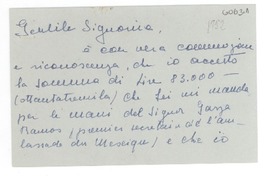 Gentile Signorina,
è con vera commozione
e riconoscenza, che io accetto
la somma di Lire 83.000 —
(ottantatremila) che Lei mi manda
per le mani del Signor
Ramos, (premier secrétaire de l'am-
bassade du Mexique) e che io